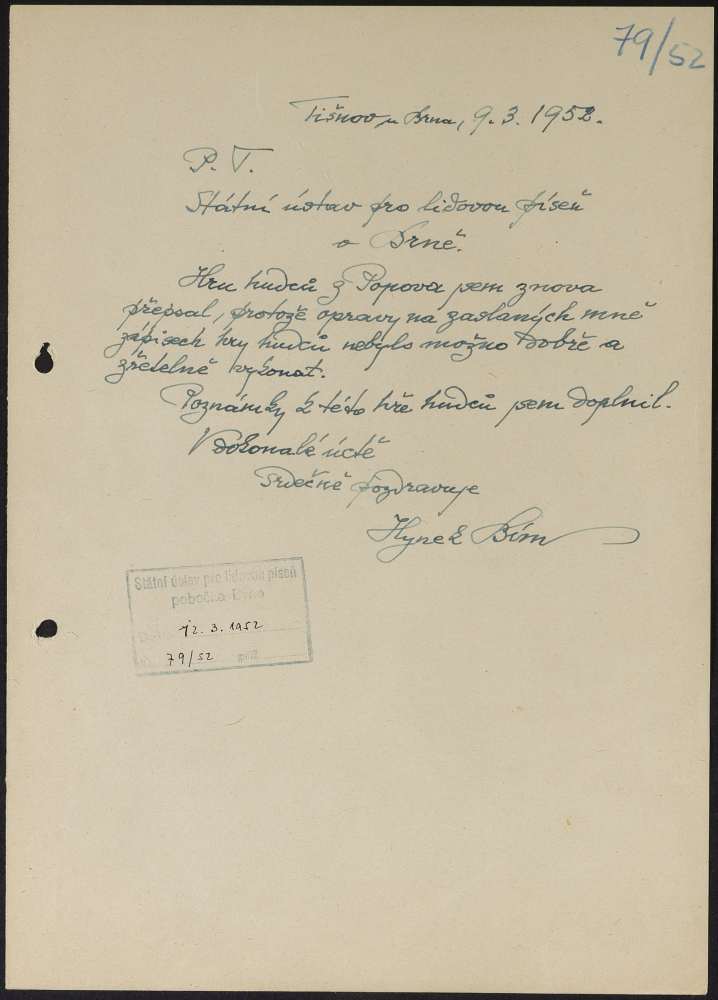 79/52
Tišnov u Brna, 9. 3. 1952.
P. T.
Státní ústav pro lidovou píseň
v Brně.
Hru hudců z Popova jsem znova
přepsal, protože opravy na zaslaných mně
zápisech hry hudců nebylo možno dobře a
zřetelně vykonat.
Poznámky k této hře hudců jsem doplnil.
V dokonalé úctě
srdečně pozdravuje
Hynek Bím
Státní ústav pro lidovou píseň
pobočka Brno
12. 3. 1952
79/52